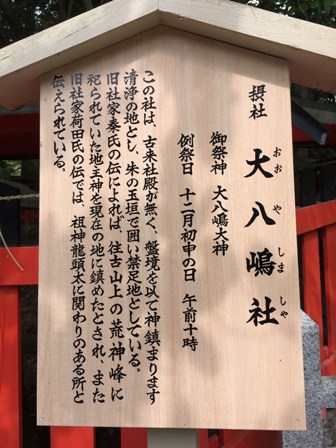 摂社 大八嶋社
おおやしましや
御祭神 大八嶋大神
例祭日 十二月初申の日 午前十時
この社は、古来社殿が無く、磐境を以て神鎮まります
清浄の地とし、朱の玉垣で囲い禁足地としている。
旧社家秦氏の伝によれば、往古山上の荒神峰に
祀られていた地主神を現在の地に鎮めたとされ、また
旧社家荷田氏の伝では、祖神龍頭太に関わりのある所と
伝えられている。